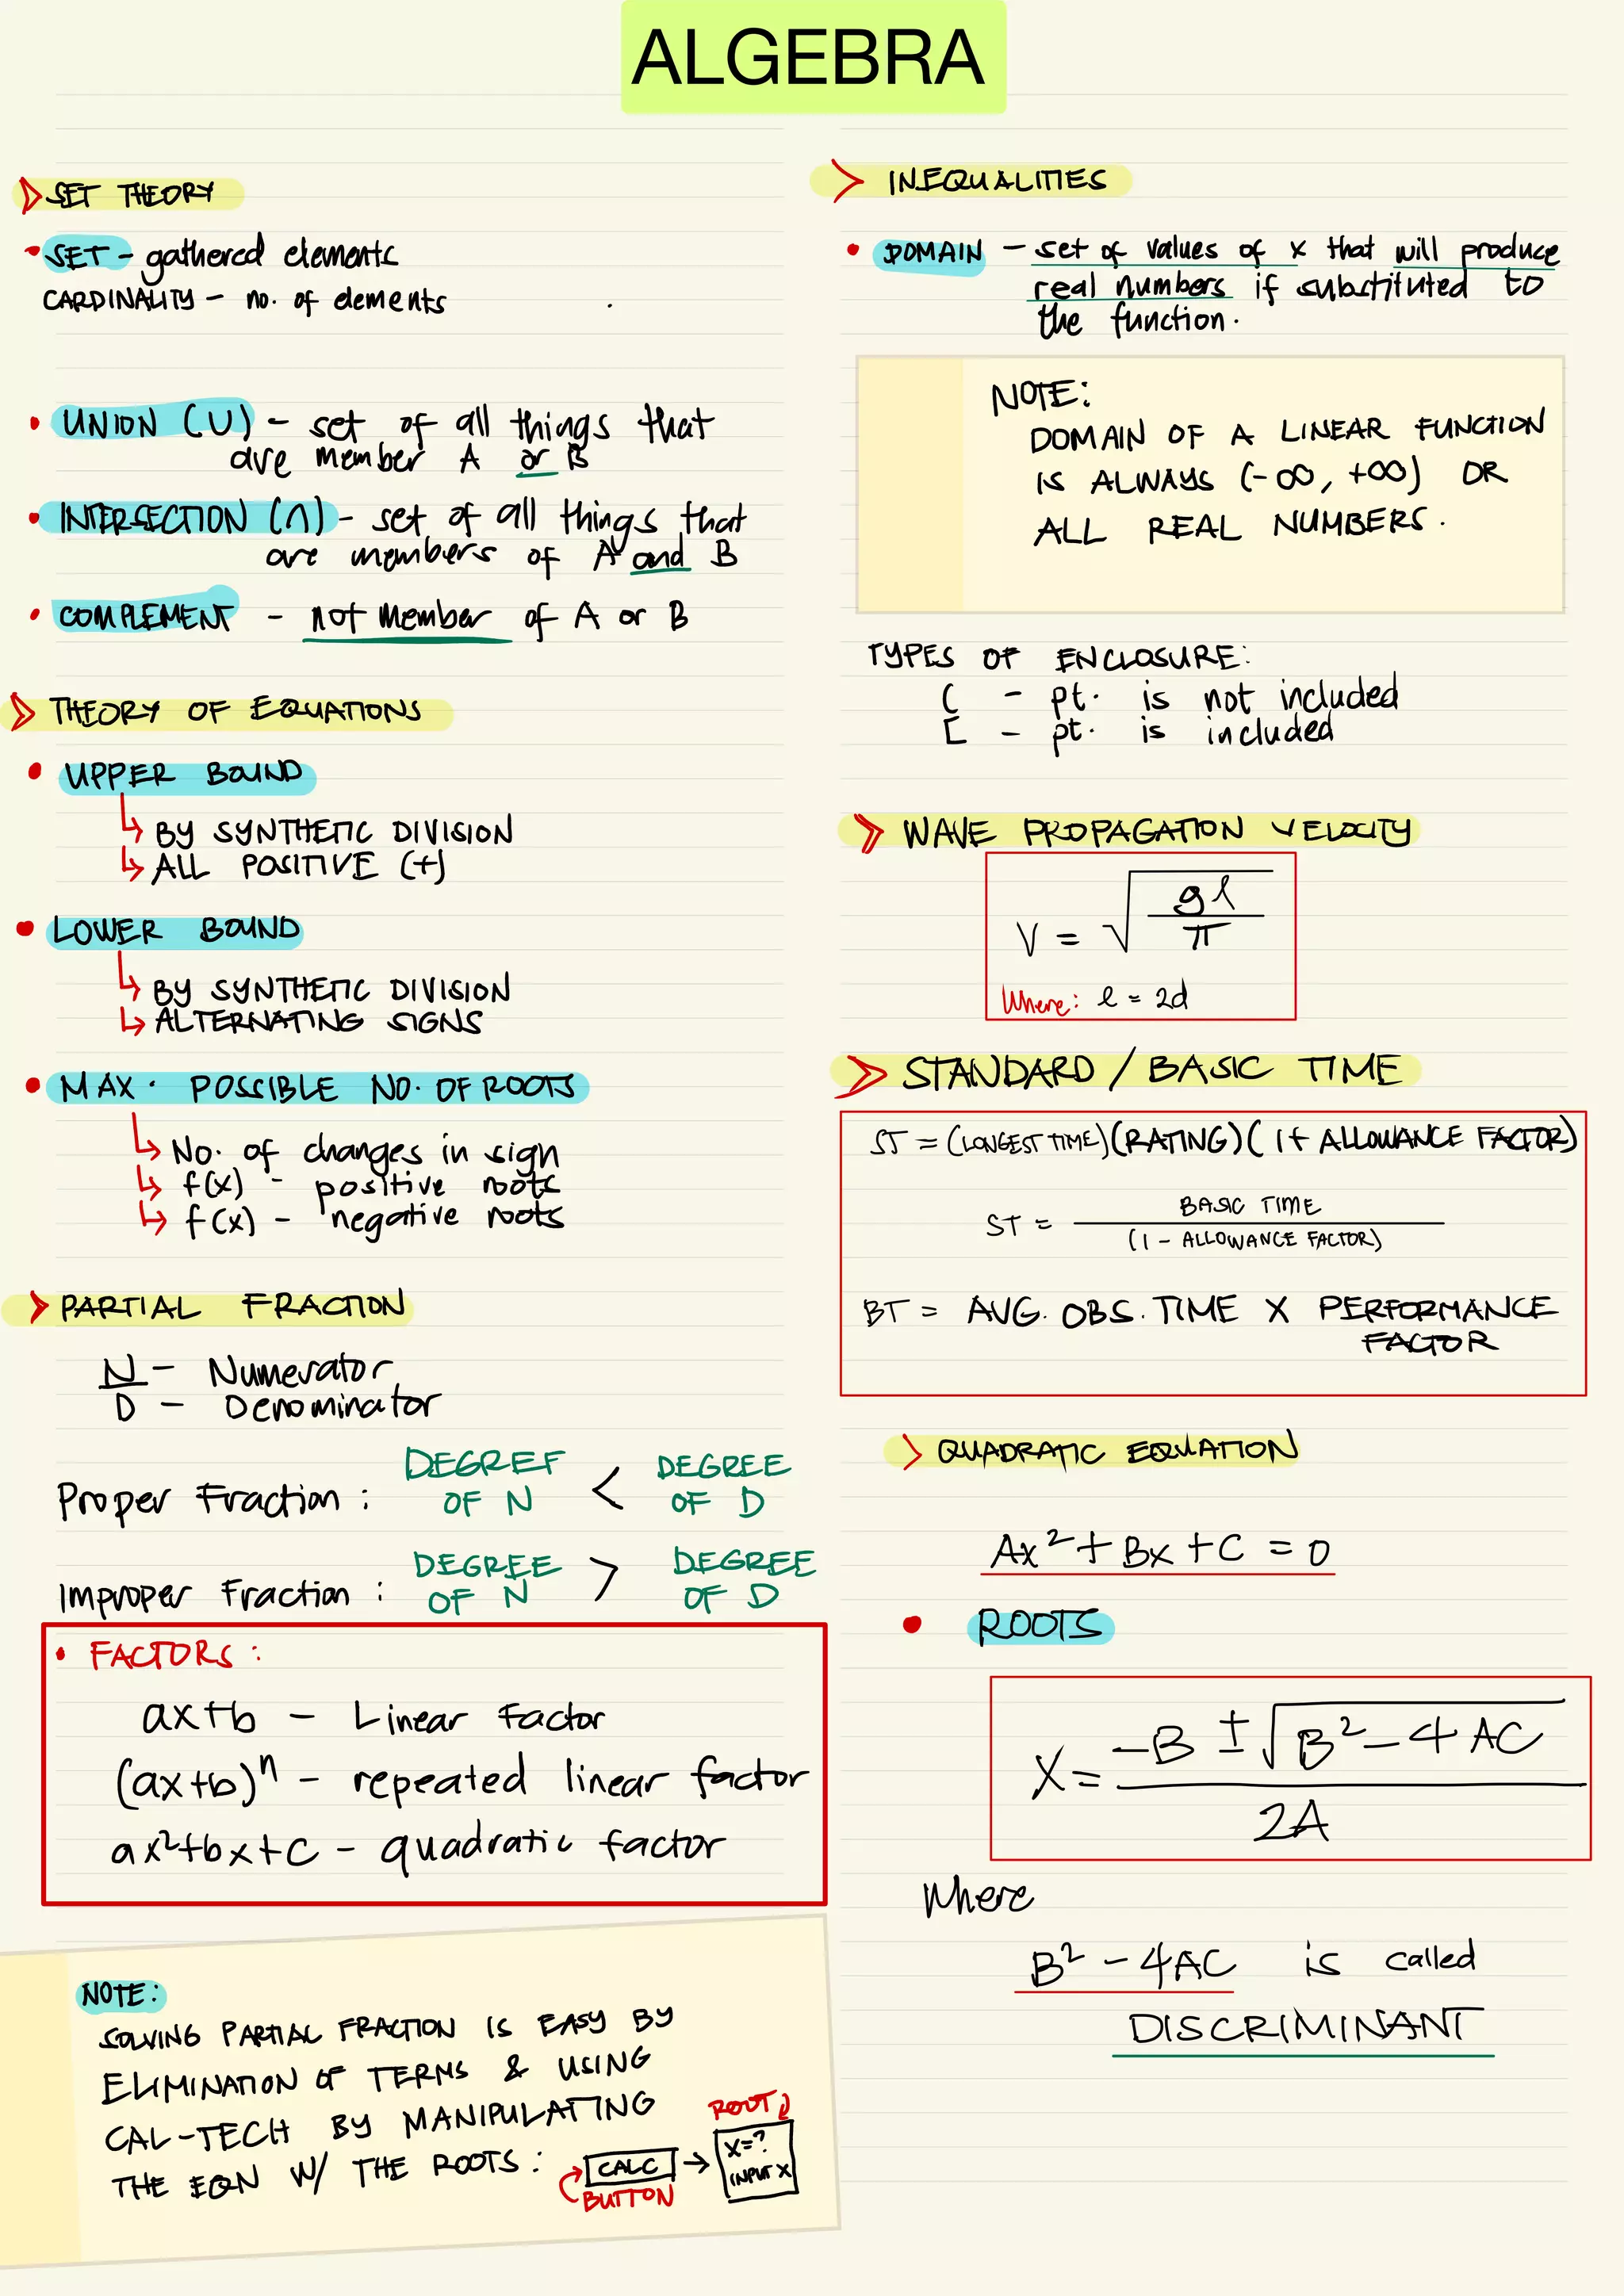 ALGEBRA
SET THEORY
SET - gathered elements
CARDINALITY - no. of elements
UNION (∪) - set of all things that
are member A or B
INTERSECTION (∩) - set of all things that
are members of A and B
COMPLEMENT - not member of A or B
THEORY OF EQUATIONS
UPPER BOUND
↳ BY SYNTHETIC DIVISION
↳ ALL POSITIVE (+)
LOWER BOUND
↳ BY SYNTHETIC DIVISION
↳ ALTERNATING SIGNS
MAX. POSSIBLE NO. OF ROOTS
↳ No. of changes in sign
↳ f(x) - positive roots
↳ f(x) - negative roots
PARTIAL FRACTION
N - Numerator
D - Denominator
DEGREE < DEGREE
Proper Fraction : OF N OF D
DEGREE > DEGREE
Improper Fraction : OF N OF D
• FACTORS :
ax+b - Linear Factor
(ax+b)ⁿ - repeated linear factor
ax²+bx+c - quadratic factor
NOTE:
SOLVING PARTIAL FRACTION IS EASY BY
ELIMINATION OF TERMS & USING
CAL-TECH BY MANIPULATING
THE EQN W/ THE ROOTS :
CALC →
BUTTON
ROOT
X=?
INPUT X
INEQUALITIES
• DOMAIN - set of values of x that will produce
real numbers if substituted to
the function.
NOTE:
DOMAIN OF A LINEAR FUNCTION
IS ALWAYS (-∞, +∞) OR
ALL REAL NUMBERS.
TYPES OF ENCLOSURE:
( - pt. is not included
[ - pt. is included
WAVE PROPAGATION VELOCITY
V = √(gl/π)
Where: l = 2d
STANDARD / BASIC TIME
ST = (LONGEST TIME)(RATING)(1+ ALLOWANCE FACTOR)
BASIC TIME
ST =
(1 - ALLOWANCE FACTOR)
BT = AVG. OBS. TIME X PERFORMANCE
FACTOR
QUADRATIC EQUATION
Ax² + Bx + C = 0
• ROOTS
X = -B ± √B² - 4AC
2A
Where
B² - 4AC is called
DISCRIMINANT